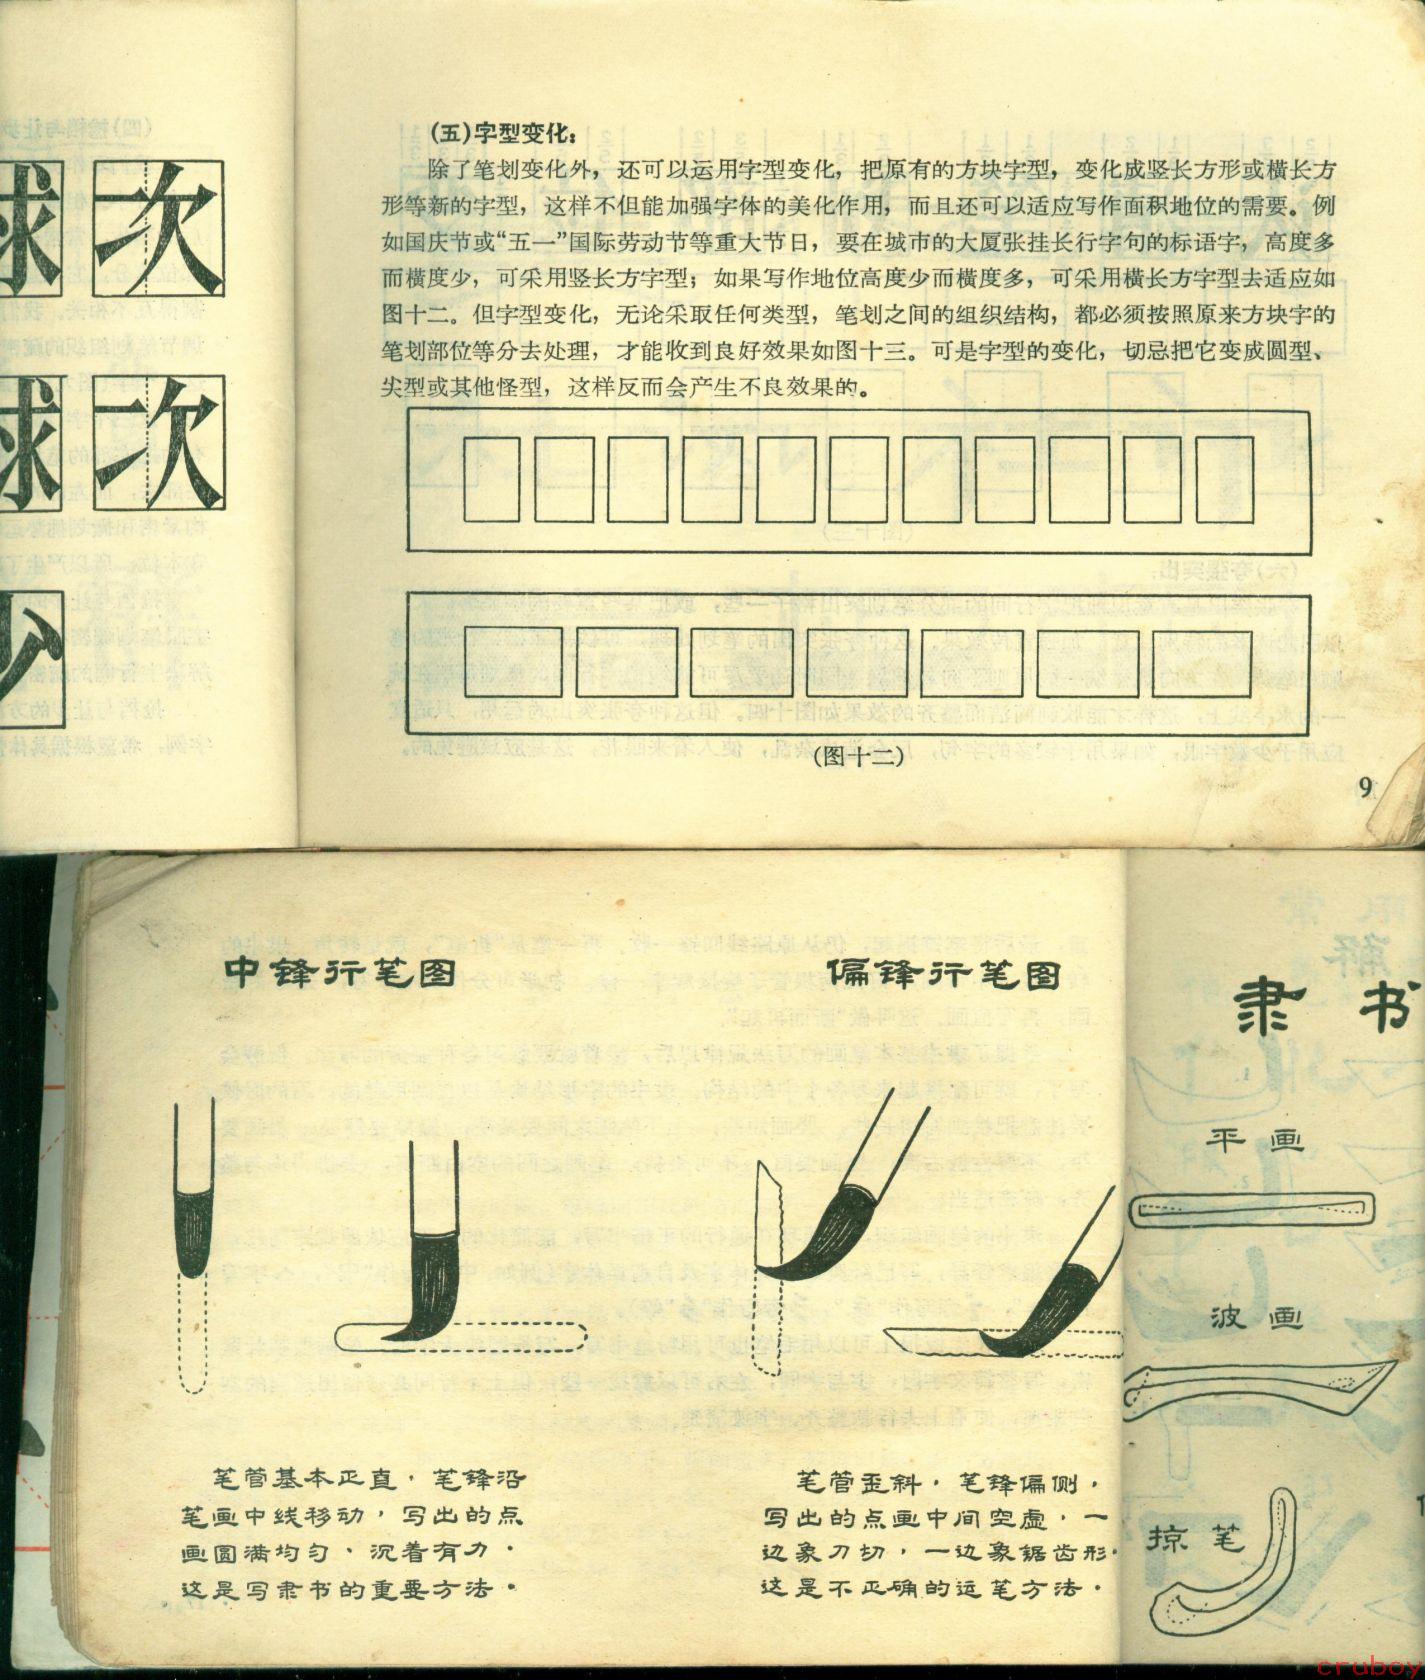 球 次
球 次
少
(五)字型变化：
除了笔划变化外，还可以运用字型变化，把原有的方块字型，变化成竖长方形或横长方
形等新的字型，这样不但能加强字体的美化作用，而且还可以适应写作面积地位的需要。例
如国庆节或“五一”国际劳动节等重大节日，要在城市的大厦张挂长行字句的标语字，高度多
而横度少，可采用竖长方字型；如果写作地位高度少而横度多，可采用横长方字型去适应如
图十二。但字型变化，无论采取任何类型，笔划之间的组织结构，都必须按照原来方块字的
笔划部位等分去处理，才能收到良好效果如图十三。可是字型的变化，切忌把它变成圆型、
尖型或其他怪型，这样反而会产生不良效果的。
(图十二)
9
中锋行笔图
笔管基本正直，笔锋沿
笔画中线移动，写出的点
画圆满均匀、沉着有力。
这是写隶书的重要方法。
偏锋行笔图
笔管歪斜，笔锋偏侧，
写出的点画中间空虚，一
边象刀切，一边象锯齿形。
这是不正确的运笔方法。
隶书
平画
波画
掠笔
cruboy